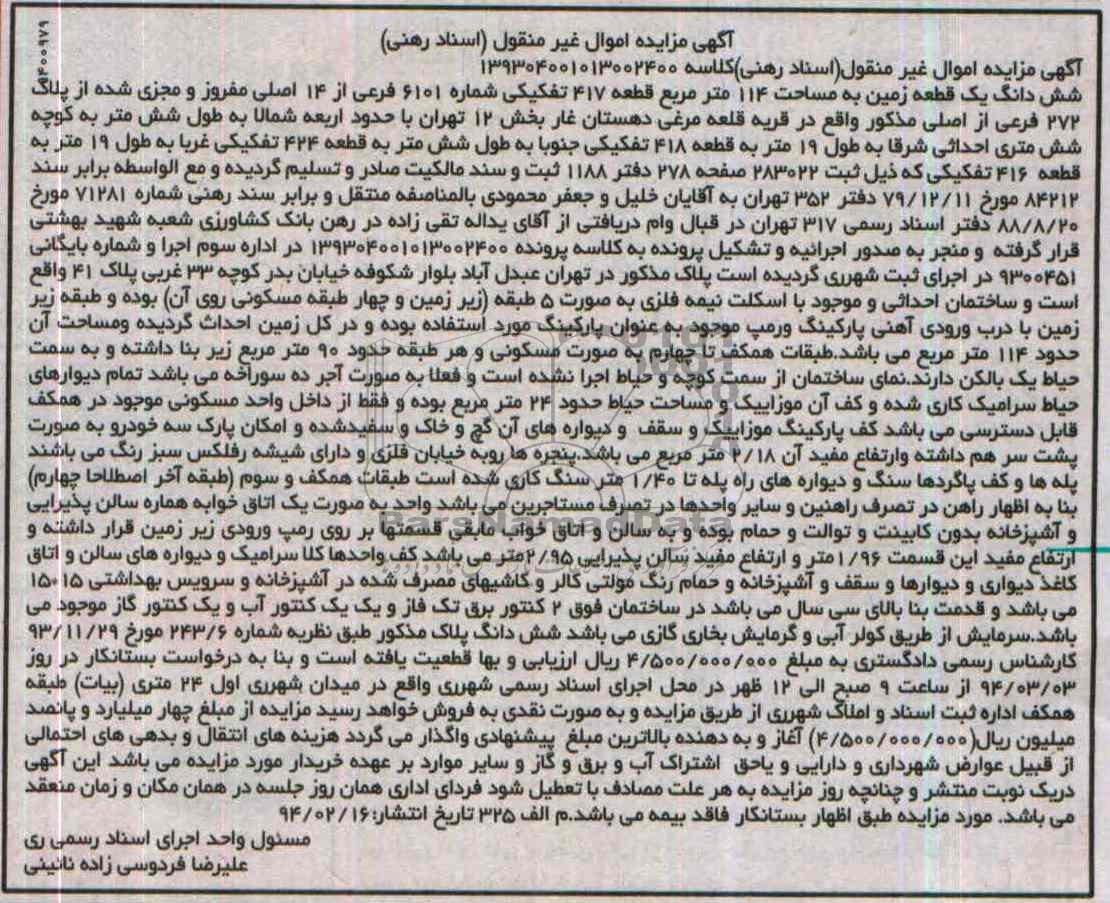 ۹۴۰۰۹۷۹
آگهی مزایده اموال غیر منقول (اسناد رهنی)
آگهی مزایده اموال غیر منقول(اسناد رهنی)کلاسه ۱۳۹۳۰۴۰۰۱۰۱۳۰۰۲۴۰۰
شش دانگ یک قطعه زمین به مساحت ۱۱۴ متر مربع قطعه ۴۱۷ تفکیکی شماره ۶۱۰۱ فرعی از ۱۴ اصلی مفروز و مجزی شده از پلاک
۲۷۲ فرعی از اصلی مذکور واقع در قریه قلعه مرغی دهستان غار بخش ۱۲ تهران با حدود اربعه شمالا به طول شش متر به کوچه
شش متری احداثی شرقا به طول ۱۹ متر به قطعه ۴۱۸ تفکیکی جنوبا به طول شش متر به قطعه ۴۲۴ تفکیکی غربا به طول ۱۹ متر به
قطعه ۴۱۶ تفکیکی که ذیل ثبت ۲۸۳۰۲۲ صفحه ۲۷۸ دفتر ۱۱۸۸ ثبت و سند مالکیت صادر و تسلیم گردیده و مع الواسطه برابر سند
۸۴۲۱۲ مورخ ۷۹/۱۲/۱۱ دفتر ۳۵۲ تهران به آقایان خلیل و جعفر محمودی بالمناصفه منتقل و برابر سند رهنی شماره ۷۱۲۸۱ مورخ
۸۸/۸/۲۰ دفتر اسناد رسمی ۳۱۷ تهران در قبال وام دریافتی از آقای یداله تقی زاده در رهن بانک کشاورزی شعبه شهید بهشتی
قرار گرفته و منجر به صدور اجرائیه و تشکیل پرونده به کلاسه پرونده ۱۳۹۳۰۴۰۰۱۰۱۳۰۰۲۴۰۰ در اداره سوم اجرا و شماره بایگانی
۹۳۰۰۴۵۱ در اجرای ثبت شهرری گردیده است پلاک مذکور در تهران عبدل آباد بلوار شکوفه خیابان بدر کوچه ۳۳ غربی پلاک ۴۱ واقع
است و ساختمان احداثی و موجود با اسکلت نیمه فلزی به صورت ۵ طبقه (زیر زمین و چهار طبقه مسکونی روی آن) بوده و طبقه زیر
زمین با درب ورودی آهنی پارکینگ ورمپ موجود به عنوان پارکینگ مورد استفاده بوده و در کل زمین احداث گردیده ومساحت آن
حدود ۱۱۴ متر مربع می باشد.طبقات همکف تا چهارم به صورت مسکونی و هر طبقه حدود ۹۰ متر مربع زیر بنا داشته و به سمت
حیاط یک بالکن دارند.نمای ساختمان از سمت کوچه و حیاط اجرا نشده است و فعلا به صورت آجر ده سوراخه می باشد تمام دیوارهای
حیاط سرامیک کاری شده و کف آن موزاییک و مساحت حیاط حدود ۲۴ متر مربع بوده و فقط از داخل واحد مسکونی موجود در همکف
قابل دسترسی می باشد کف پارکینگ موزاییک و سقف و دیواره های آن گچ و خاک و سفیدشده و امکان پارک سه خودرو به صورت
پشت سر هم داشته وارتفاع مفید آن ۲/۱۸ متر مربع می باشد.پنجره ها روبه خیابان فلزی و دارای شیشه رفلکس سبز رنگ می باشند
پله ها و کف پاگردها سنگ و دیواره های راه پله تا ۱/۴۰ متر سنگ کاری شده است طبقات همکف و سوم (طبقه آخر اصطلاحا چهارم)
بنا به اظهار راهن در تصرف راهنین و سایر واحدها در تصرف مستاجرین می باشد واحد به صورت یک اتاق خوابه هماره سالن پذیرایی
و آشپزخانه بدون کابینت و توالت و حمام بوده و به سالن و اتاق خواب مابقی قسمتها بر روی رمپ ورودی زیر زمین قرار داشته و
ارتفاع مفید این قسمت ۱/۹۶متر و ارتفاع مفید سالن پذیرایی ۲/۹۵متر می باشد کف واحدها کلا سرامیک و دیواره های سالن و اتاق
کاغذ دیواری و دیوارها و سقف و آشپزخانه و حمام رنگ مولتی کالر و کاشیهای مصرف شده در آشپزخانه و سرویس بهداشتی ۱۵*۱۵
می باشد و قدمت بنا بالای سی سال می باشد در ساختمان فوق ۲ کنتور برق تک فاز و یک یک کنتور آب و یک کنتور گاز موجود می
باشد.سرمایش از طریق کولر آبی و گرمایش بخاری گازی می باشد شش دانگ پلاک مذکور طبق نظریه شماره ۲۴۳/۶ مورخ ۹۳/۱۱/۲۹
کارشناس رسمی دادگستری به مبلغ ۴/۵۰۰/۰۰۰/۰۰۰ ریال ارزیابی و بها قطعیت یافته است و بنا به درخواست بستانکار در روز
۹۴/۰۳/۰۳ از ساعت ۹ صبح الی ۱۲ ظهر در محل اجرای اسناد رسمی شهرری واقع در میدان شهرری اول ۲۴ متری (بیات) طبقه
همکف اداره ثبت اسناد و املاک شهرری از طریق مزایده و به صورت نقدی به فروش خواهد رسید مزایده از مبلغ چهار میلیارد و پانصد
میلیون ریال(۴/۵۰۰/۰۰۰/۰۰۰) آغاز و به دهنده بالاترین مبلغ پیشنهادی واگذار می گردد هزینه های انتقال و بدهی های احتمالی
از قبیل عوارض شهرداری و دارایی و یاحق اشتراک آب و برق و گاز و سایر موارد بر عهده خریدار مورد مزایده می باشد این آگهی
دریک نوبت منتشر و چنانچه روز مزایده به هر علت مصادف با تعطیل شود فردای اداری همان روز جلسه در همان مکان و زمان منعقد
می باشد. مورد مزایده طبق اظهار بستانکار فاقد بیمه می باشد.م الف ۳۲۵ تاریخ انتشار:۹۴/۰۲/۱۶
مسئول واحد اجرای اسناد رسمی ری
علیرضا فردوسی زاده نائینی
ParsNamadData